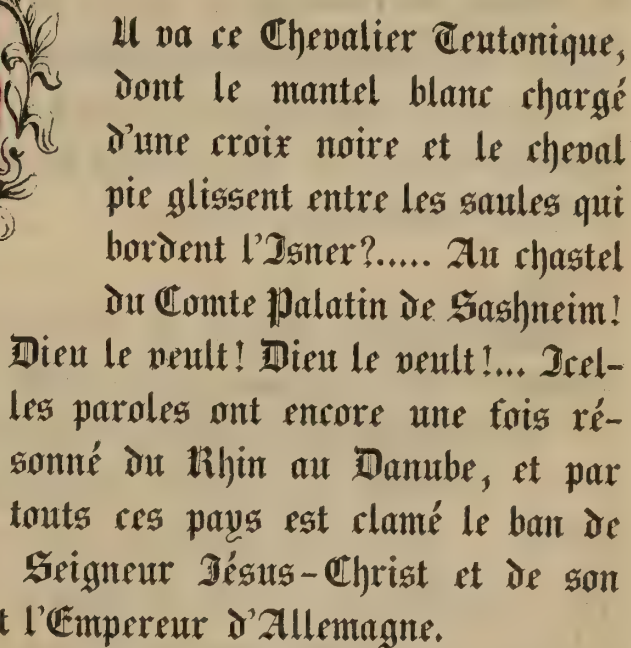 U va ce Chevalier Teutonique,
dont le mantel blanc chargé
d'une croix noire et le cheval
pie glissent entre les saules qui
bordent l'Isner?..... Au chastel
du Comte Palatin de Sashneim!
Dieu le veult! Dieu le veult!... Icel-
les paroles ont encore une fois ré-
sonné du Rhin au Danube, et par
touts ces pays est clamé le ban de
Seigneur Jésus-Christ et de son
t l'Empereur d'Allemagne.